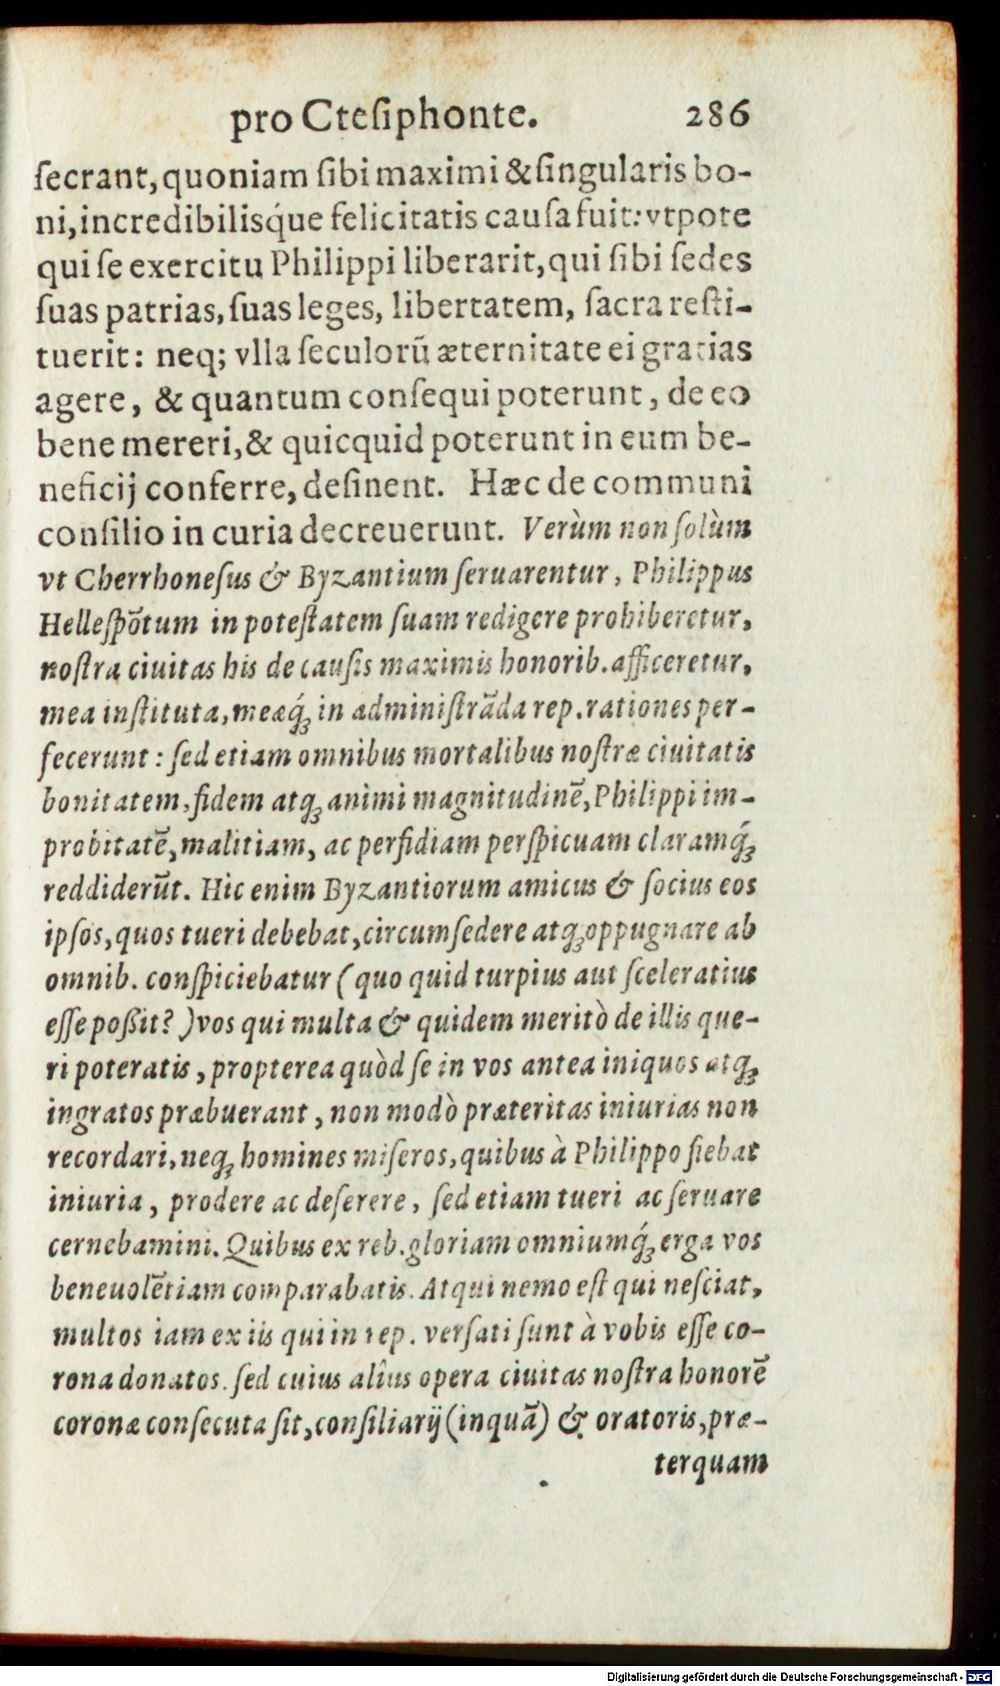 pro Cteſiphonte. 286
ſecrant, quoniam ſibi maximi & ſingularis bo-
ni, incredibilisq́ue felicitatis cauſa fuit: vtpote
qui ſe exercitu Philippi liberarit, qui ſibi ſedes
ſuas patrias, ſuas leges, libertatem, ſacra reſti-
tuerit: neq; vlla ſeculorũ æternitate ei gratias
agere, & quantum conſequi poterunt, de eo
bene mereri, & quicquid poterunt in eum be-
neficij conferre, deſinent. Hæc de communi
conſilio in curia decreuerunt. Verùm non ſolùm
vt Cherrhoneſus & Byzantium ſeruarentur, Philippus
Helleſpõtum in poteſtatem ſuam redigere prohiberetur,
noſtra ciuitas his de cauſis maximis honorib. afficeretur,
mea inſtituta, meæq́ꝫ in adminiſtrãda rep. rationes per-
fecerunt: ſed etiam omnibus mortalibus noſtræ ciuitatis
bonitatem, fidem atqꝫ animi magnitudinẽ, Philippi im-
probitatẽ, malitiam, ac perfidiam perſpicuam claramq́ꝫ
reddiderũt. Hic enim Byzantiorum amicus & ſocius eos
ipſos, quos tueri debebat, circumſedere atqꝫ oppugnare ab
omnib. conſpiciebatur (quo quid turpius aut ſceleratius
eſſe poßit?) vos qui multa & quidem meritò de illis que-
ri poteratis, propterea quòd ſe in vos antea iniquos atqꝫ
ingratos præbuerant, non modò præteritas iniurias non
recordari, neqꝫ homines miſeros, quibus à Philippo fiebat
iniuria, prodere ac deſerere, ſed etiam tueri ac ſeruare
cernebamini. Quibus ex reb. gloriam omniumq́ꝫ erga vos
beneuolẽtiam comparabatis. Atqui nemo eſt qui neſciat,
multos iam ex iis qui in rep. verſati ſunt à vobis eſſe co-
rona donatos. ſed cuius alîus opera ciuitas noſtra honorẽ
coronæ conſecuta ſit, conſiliarij (inquã) & oratoris, præ-
terquam
Digitalisierung gefördert durch die Deutsche Forschungsgemeinschaft - DFG